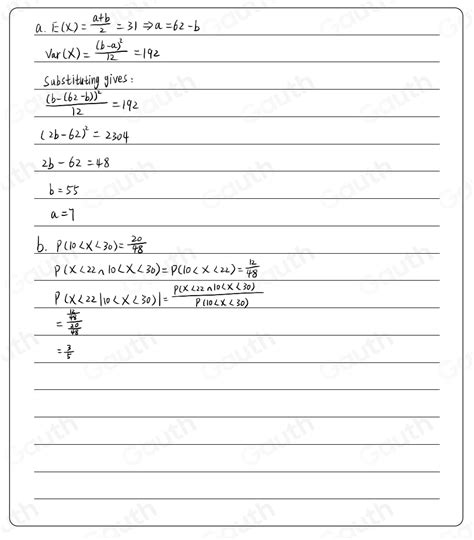 a. E(X) = (a+b)/2 = 31 ⇒ a = 62 - b
Var(X) = (b-a)²/12 = 192
Substituting gives:
(b-(62-b))²/12 = 192
(2b-62)² = 2304
2b - 62 = 48
b = 55
a = 7
b. P(10<X<30) = 20/48
P(X<22 ∩ 10<X<30) = P(10<X<22) = 12/48
P(X<22|10<X<30) = P(X<22 ∩ 10<X<30)/P(10<X<30)
= (12/48)/(20/48)
= 3/5
Gauth